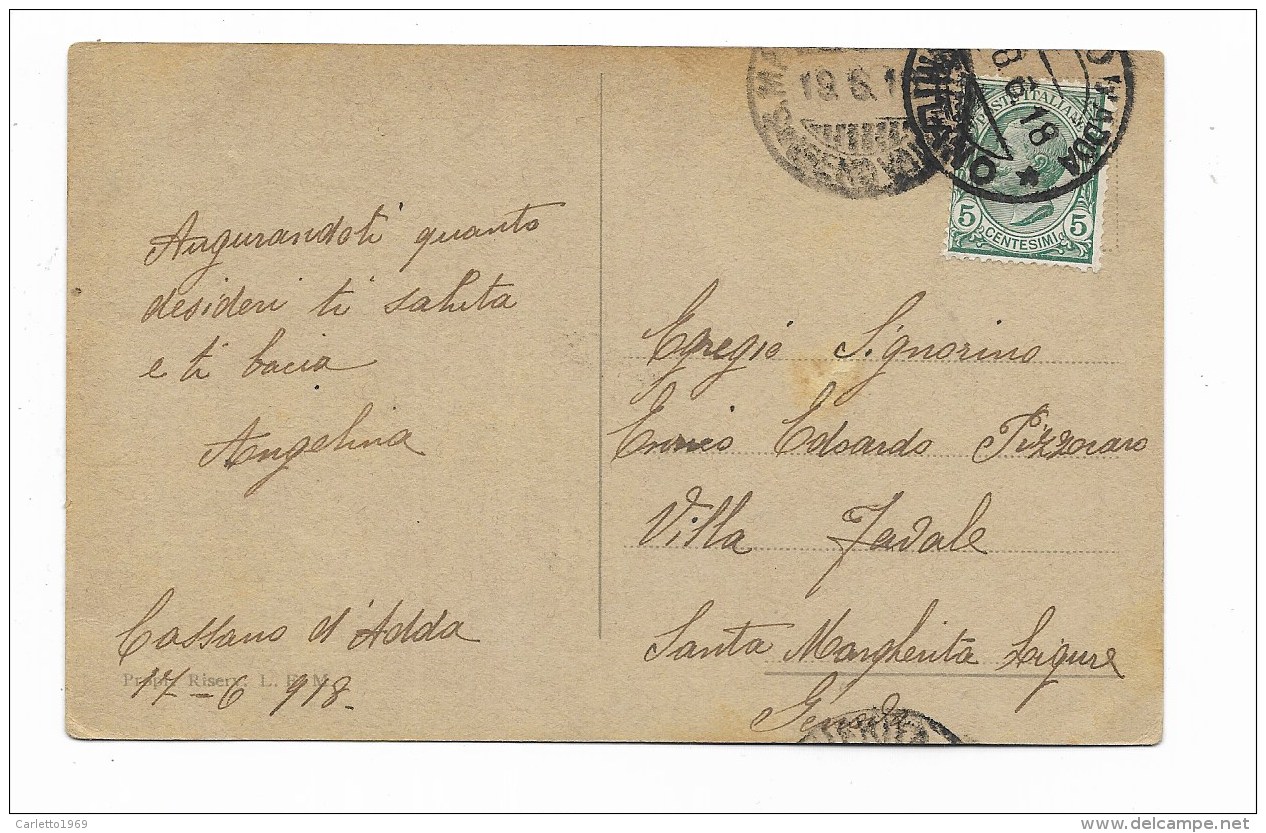 Augurandoti quanto
desideri ti saluta
e ti bacia
Angelina
Cassano d'Adda
17-6 918-
Propr. Riserv. L. E. M.
19.6.1
18.6.18
POSTE ITALIANE
5 CENTESIMI 5
Egregio Signorino
Ennio Edoardo Pizzocaro
Villa
Santa Margherita Ligure
Genova
Carletto1969
delcampe.net